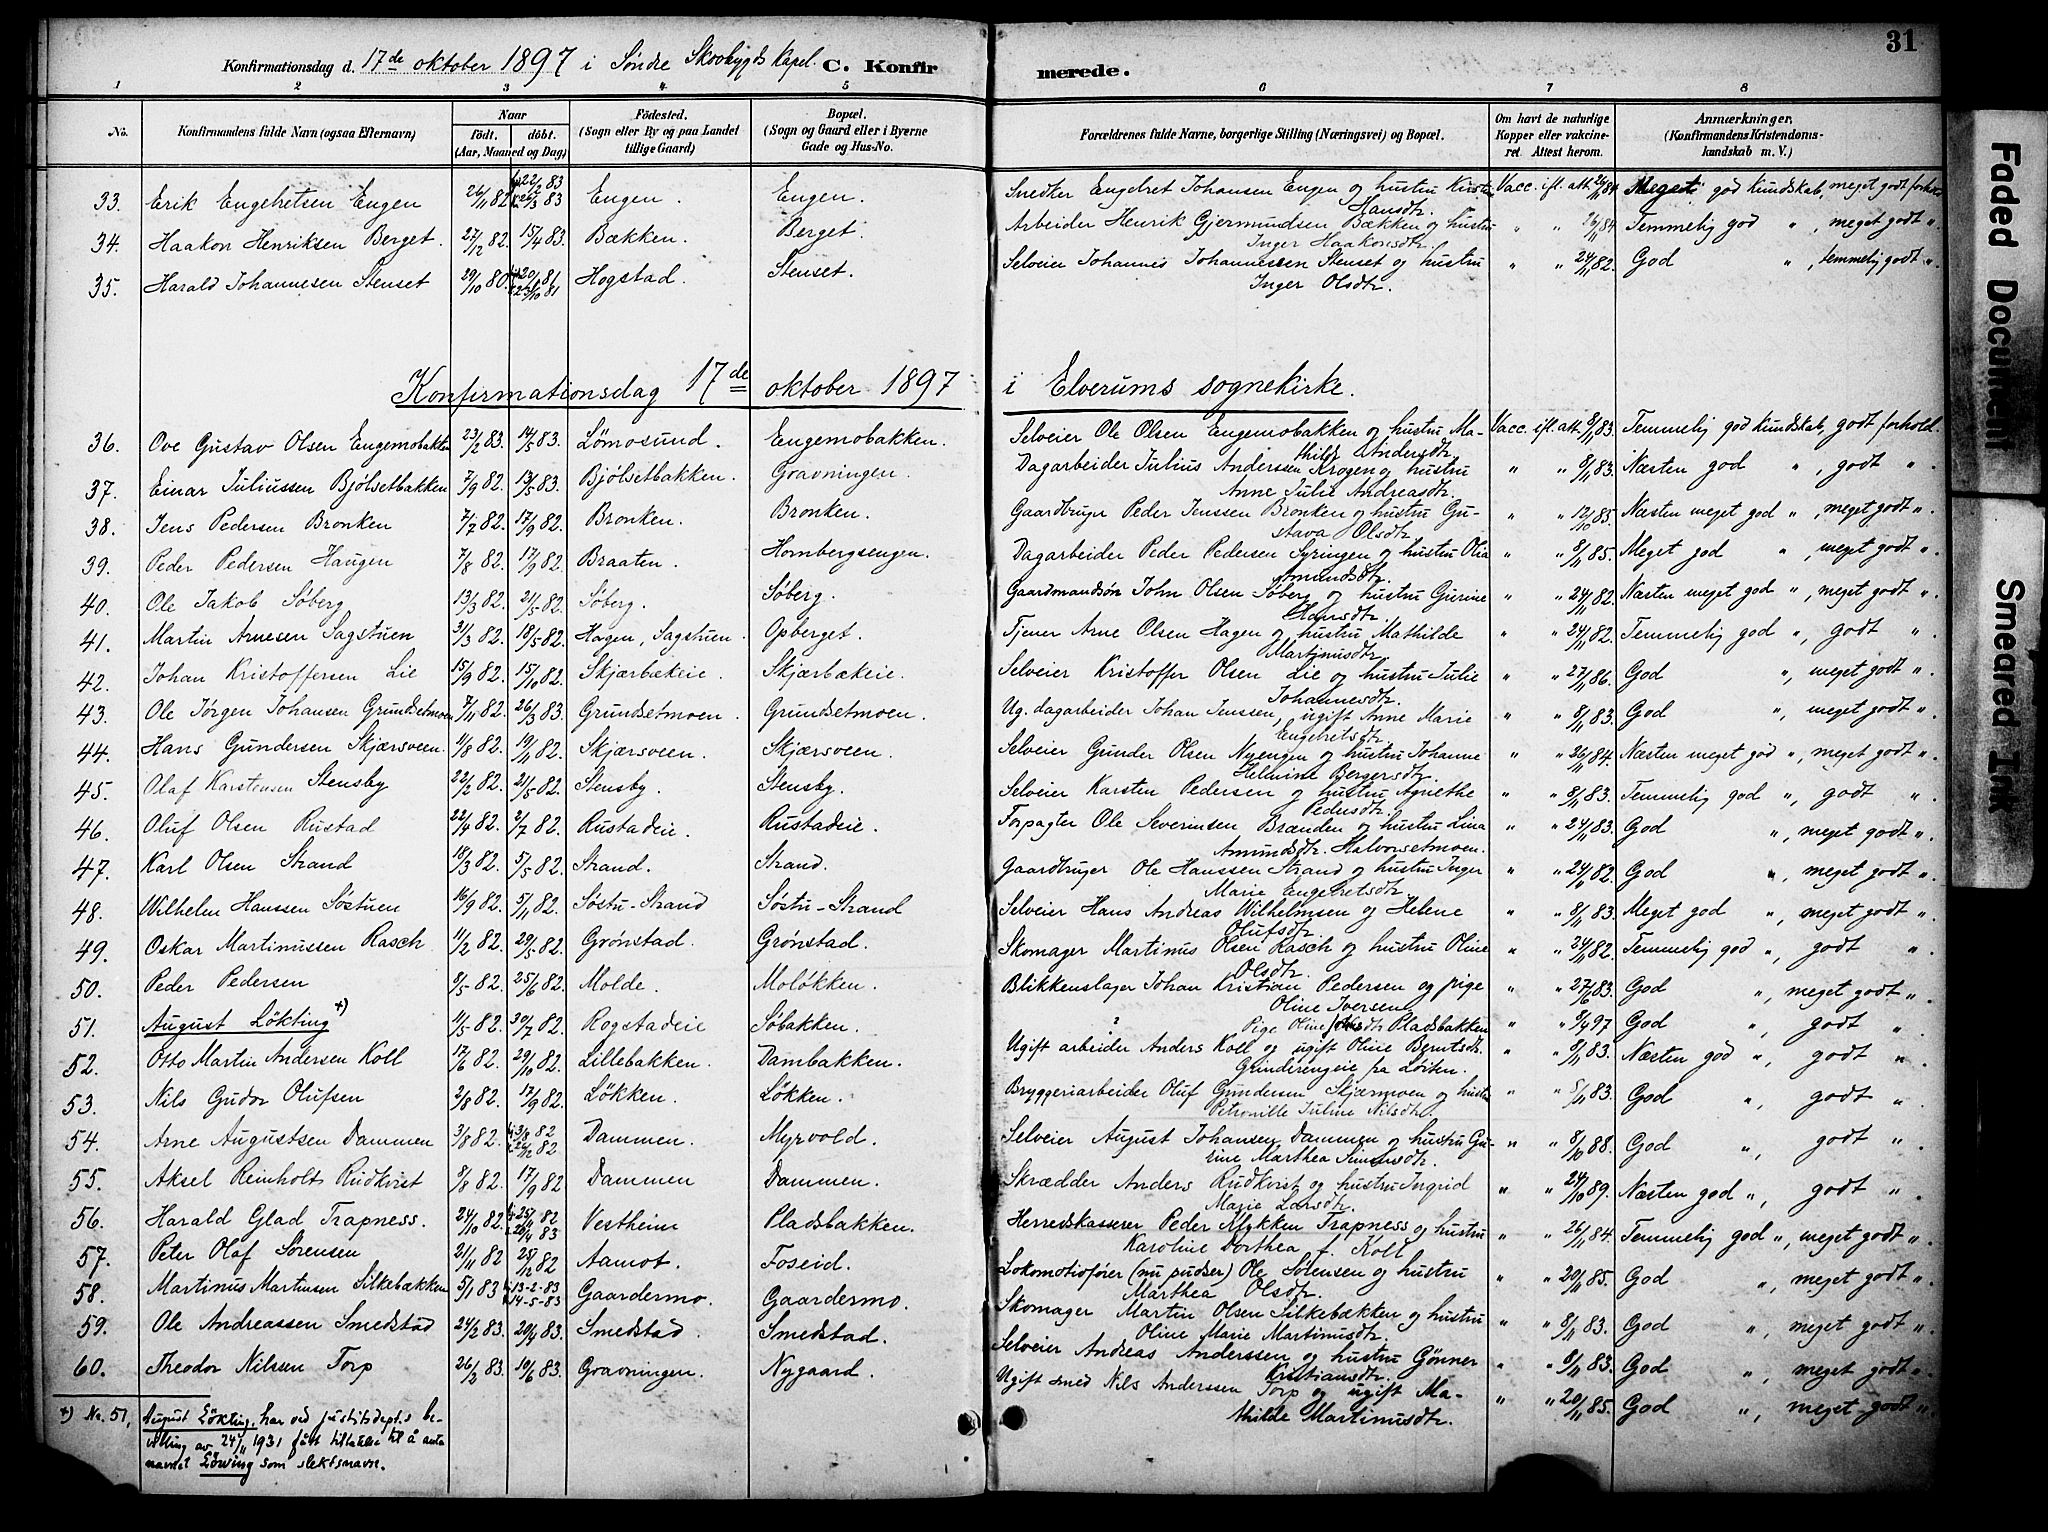 31
Konfirmationsdag d. 17de oktober 1897 i Søndre Skovbygds Kapel. C. Konfirmerede.
1 2 3 4 5 6 7 8
No. Konfirmandens fulde Navn (ogsaa Efternavn) Naar født. døbt. (Aar, Maaned og Dag) Födested. (Sogn eller By og paa Landet tillige Gaard) Bopæl. (Sogn og Gaard eller i Byerne Gade og Hus-No. Forældrenes fulde Navne, borgerlige Stilling (Næringsvei) og Bopæl. Om havt de naturlige Kopper eller vakcineret. Attest herom. Anmærkninger. (Konfirmandens Kristendomskundskab m. V.)
33. Erik Engebretsen Engen 26/11 82 Engen. Engen. Snedker Engebret Johansen Engen og hustru Kirsti Hansdtr. Vacc. ifl. att. 26/11 84. Meget god kundskab, meget godt forhold
34. Haakon Henriksen Berget. 27/12 82. 15/4 83. Bækken. Berget. Arbeider Henrik Gjermundsen Bækken og hustru Inger Haakonsdtr. " " 26/11 84 Temmelig god ", meget godt ".
35. Harald Johannesen Stenset 29/10 80. Hogstad. Stenset. Selveier Johannes Johannessen Stenset og hustru Inger Olsdtr. " " 24/11 82. God ", temmelig godt ".
Konfirmationsdag 17de oktober 1897 i Elverums sognekirke.
36. Ove Gustav Olsen Engemobakken 23/2 83. 14/5 83. Lømosund. Engemobakken. Selveier Ole Olsen Engemobakken og hustru Mathilde Andersdtr. Vacc. ifl. att. 8/11 83. Temmelig god kundskab, godt forhold.
37. Einar Juliussen Bjölsetbakken 7/9 82. 13/5 83. Bjölsetbakken. Gravningen. Dagarbeider Julius Anderssen Krogen og hustru Anne Julie Andreasdtr. " " 8/11 83. Næsten god ", godt ".
38. Jens Pedersen Bronken 7/7 82. 17/9 82. Bronken. Bronken. Gaardbruger Peder Jenssen Bronken og hustru Gustava Olsdtr. " " 12/10 85. Næsten meget god ", meget godt ".
39. Peder Pedersen Haugen 7/8 82. 17/9 82. Braaten. Hornbergsengen. Dagarbeider Peder Pedersen Syringen og hustru Olia Amundsdtr. " " 8/11 85. Meget god ", meget godt ".
40. Ole Jakob Søberg 13/3 82. 21/5 82. Søberg. Søberg. Gaardmandsøn John Olsen Søberg og hustru Gurine Hansdtr. " " 24/11 82. Næsten meget god ", meget godt ".
41. Martin Arnesen Sagstuen 31/3 82. 18/5 82. Hagen, Sagstuen. Opberget. Tjener Arne Olsen Hagen og hustru Mathilde Martinusdtr. " " 24/11 82. Temmelig god ", godt ".
42. Johan Kristoffersen Lie 15/9 82. 15/10 82. Skjærbækeie. Skjærbækeie. Selveier Kristoffer Olsen Lie og hustru Julie Johannesdtr. " " 27/11 86. God ", meget godt ".
43. Ole Jørgen Johansen Grundsetmoen 7/11 82. 26/3 83. Grundsetmoen. Grundsetmoen. Ug. dagarbeider Johan Jenssen, ugift Anne Marie Engebretsdtr. " " 8/11 83. God ", meget godt ".
44. Hans Gundersen Skjærsveen. 11/8 82. 19/11 82. Skjærsveen. Skjærsveen. Selveier Gunder Olsen Nyengen og hustru Johanne Helmine Bergersdtr. " " 26/11 84. Næsten meget god ", meget godt ".
45. Olaf Karstensen Stensby 22/2 82. 21/5 82. Stensby. Stensby. Selveier Karsten Pedersen og hustru Agnethe Pedersdtr. " " 8/11 83. Temmelig god ", godt ".
46. Oluf Olsen Rustad 22/4 82. 2/7 82. Rustadeie. Rustadeie. Forpagter Ole Severinsen Brænden og hustru Lina Amundsdtr. Halvorsetmoen. " " 24/11 83. God ", meget godt ".
47. Karl Olsen Strand 18/3 82. 5/5 82. Strand. Strand. Gaardbruger Ole Hanssen Strand og hustru Inger Marie Engebretsdtr. " " 24/11 82. God ", meget godt ".
48. Wilhelm Hanssen Søstuen 16/9 82. 5/11 82. Søstu-Strand Søstu-Strand Selveier Hans Andreas Wilhelmsen og Helene Olufsdtr. " " 8/11 83. Meget god ", meget godt ".
49. Oskar Martinussen Rasch 11/2 82. 29/5 82. Grønstad. Grønstad. Skomager Martinus Olsen Rasch og hustru Oline Olsdtr. " " 24/11 82. Temmelig god ", godt ".
50. Peder Pedersen 8/5 82. 25/6 82. Molde. Moløkken. Blikkenslager Johan Kristian Pedersen og pige Oline Iversen " " 27/6 83. God ", meget godt ".
51. August Løkting +) 11/5 82. 30/7 82. Rogstadeie Søbakken. ? Pige Oline Pladsbakken " " 9/4 97 God ", godt "
52. Otto Martin Andersen Koll 17/6 82. 29/10 82. Lillebakken. Dambakken. Ugift arbeider Anders Koll og ugift Oline Berntsdtr. Grinderengeie fra Løiten. " " 8/11 83. Næsten god ", godt ".
53. Nils Gudor Olufsen 2/8 82. 17/9 82. Løkken. Løkken. Bryggeriarbeider Oluf Gundersen Skjærmoen og hustru Petronille Juline Nilsdtr. " " 83. God ", godt ".
54. Arne Augustsen Dammen 3/8 82. Dammen. Myrvold. Selveier August Johansen Dammen og hustru Gurine Marthea Simensdtr. " " 8/10 88. God ", godt "
55. Aksel Reinholts Rudkvist 8/8 82. 17/9 82 Dammen Dammen. Skrædder Anders Rudkvist og hustru Ingrid Marie Larsdtr. " " 24/10 89. Næsten god ", godt ".
56. Harald Glad Trapness. 24/10 82. Vestheim Pladsbakken. Herredskasserer Peder Mykken Trapness og hustru Karoline Dorthea f. Koll " " 26/11 84. Temmelig god ", meget godt ".
57. Peter Olaf Sørensen 21/11 82 28/12 82 Aamot. Foseid. Lokomotivfører (nu pudser) Ole Sørensen og hustru Marthea Olsdtr. " " 20/11 85. God ", meget godt ".
58. Martinus Martinsen Silkebækken 5/1 83 13-2-83 14-5-83 Gaardermo. Gaardermo. Skomager Martin Olsen Silkebækken og hustru Oline Marie Martinusdtr. " " 8/11 83. God ", meget godt ".
59. Ole Andreassen Smedstad 24/2 83. 20/4 83. Smedstad. Smedstad. Selveier Andreas Anderssen og hustru Gønner Kristiansdtr. " " 8/11 83. God ", meget godt ".
60. Theodor Nilssen Torp 26/2 83. 10/6 83. Gravningen. Nygaard. Ugift smed Nils Anderssen Torp og ugift Mathilde Martinusdtr. " " 20/11 85. God ", meget godt ".
+) No. 51, August Løkting, har ved justitsdept.s be-
villing av 24/11 1931 fått tillatelse til å anta
navnet Løving som slektsnavn.
Faded Document
Smeared Ink